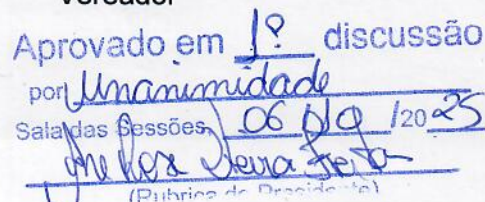 Vereador
Aprovado em 1º discussão
por Unanimidade
Sala das Sessões, 06 /20 25
(Rubrica do Presidente)